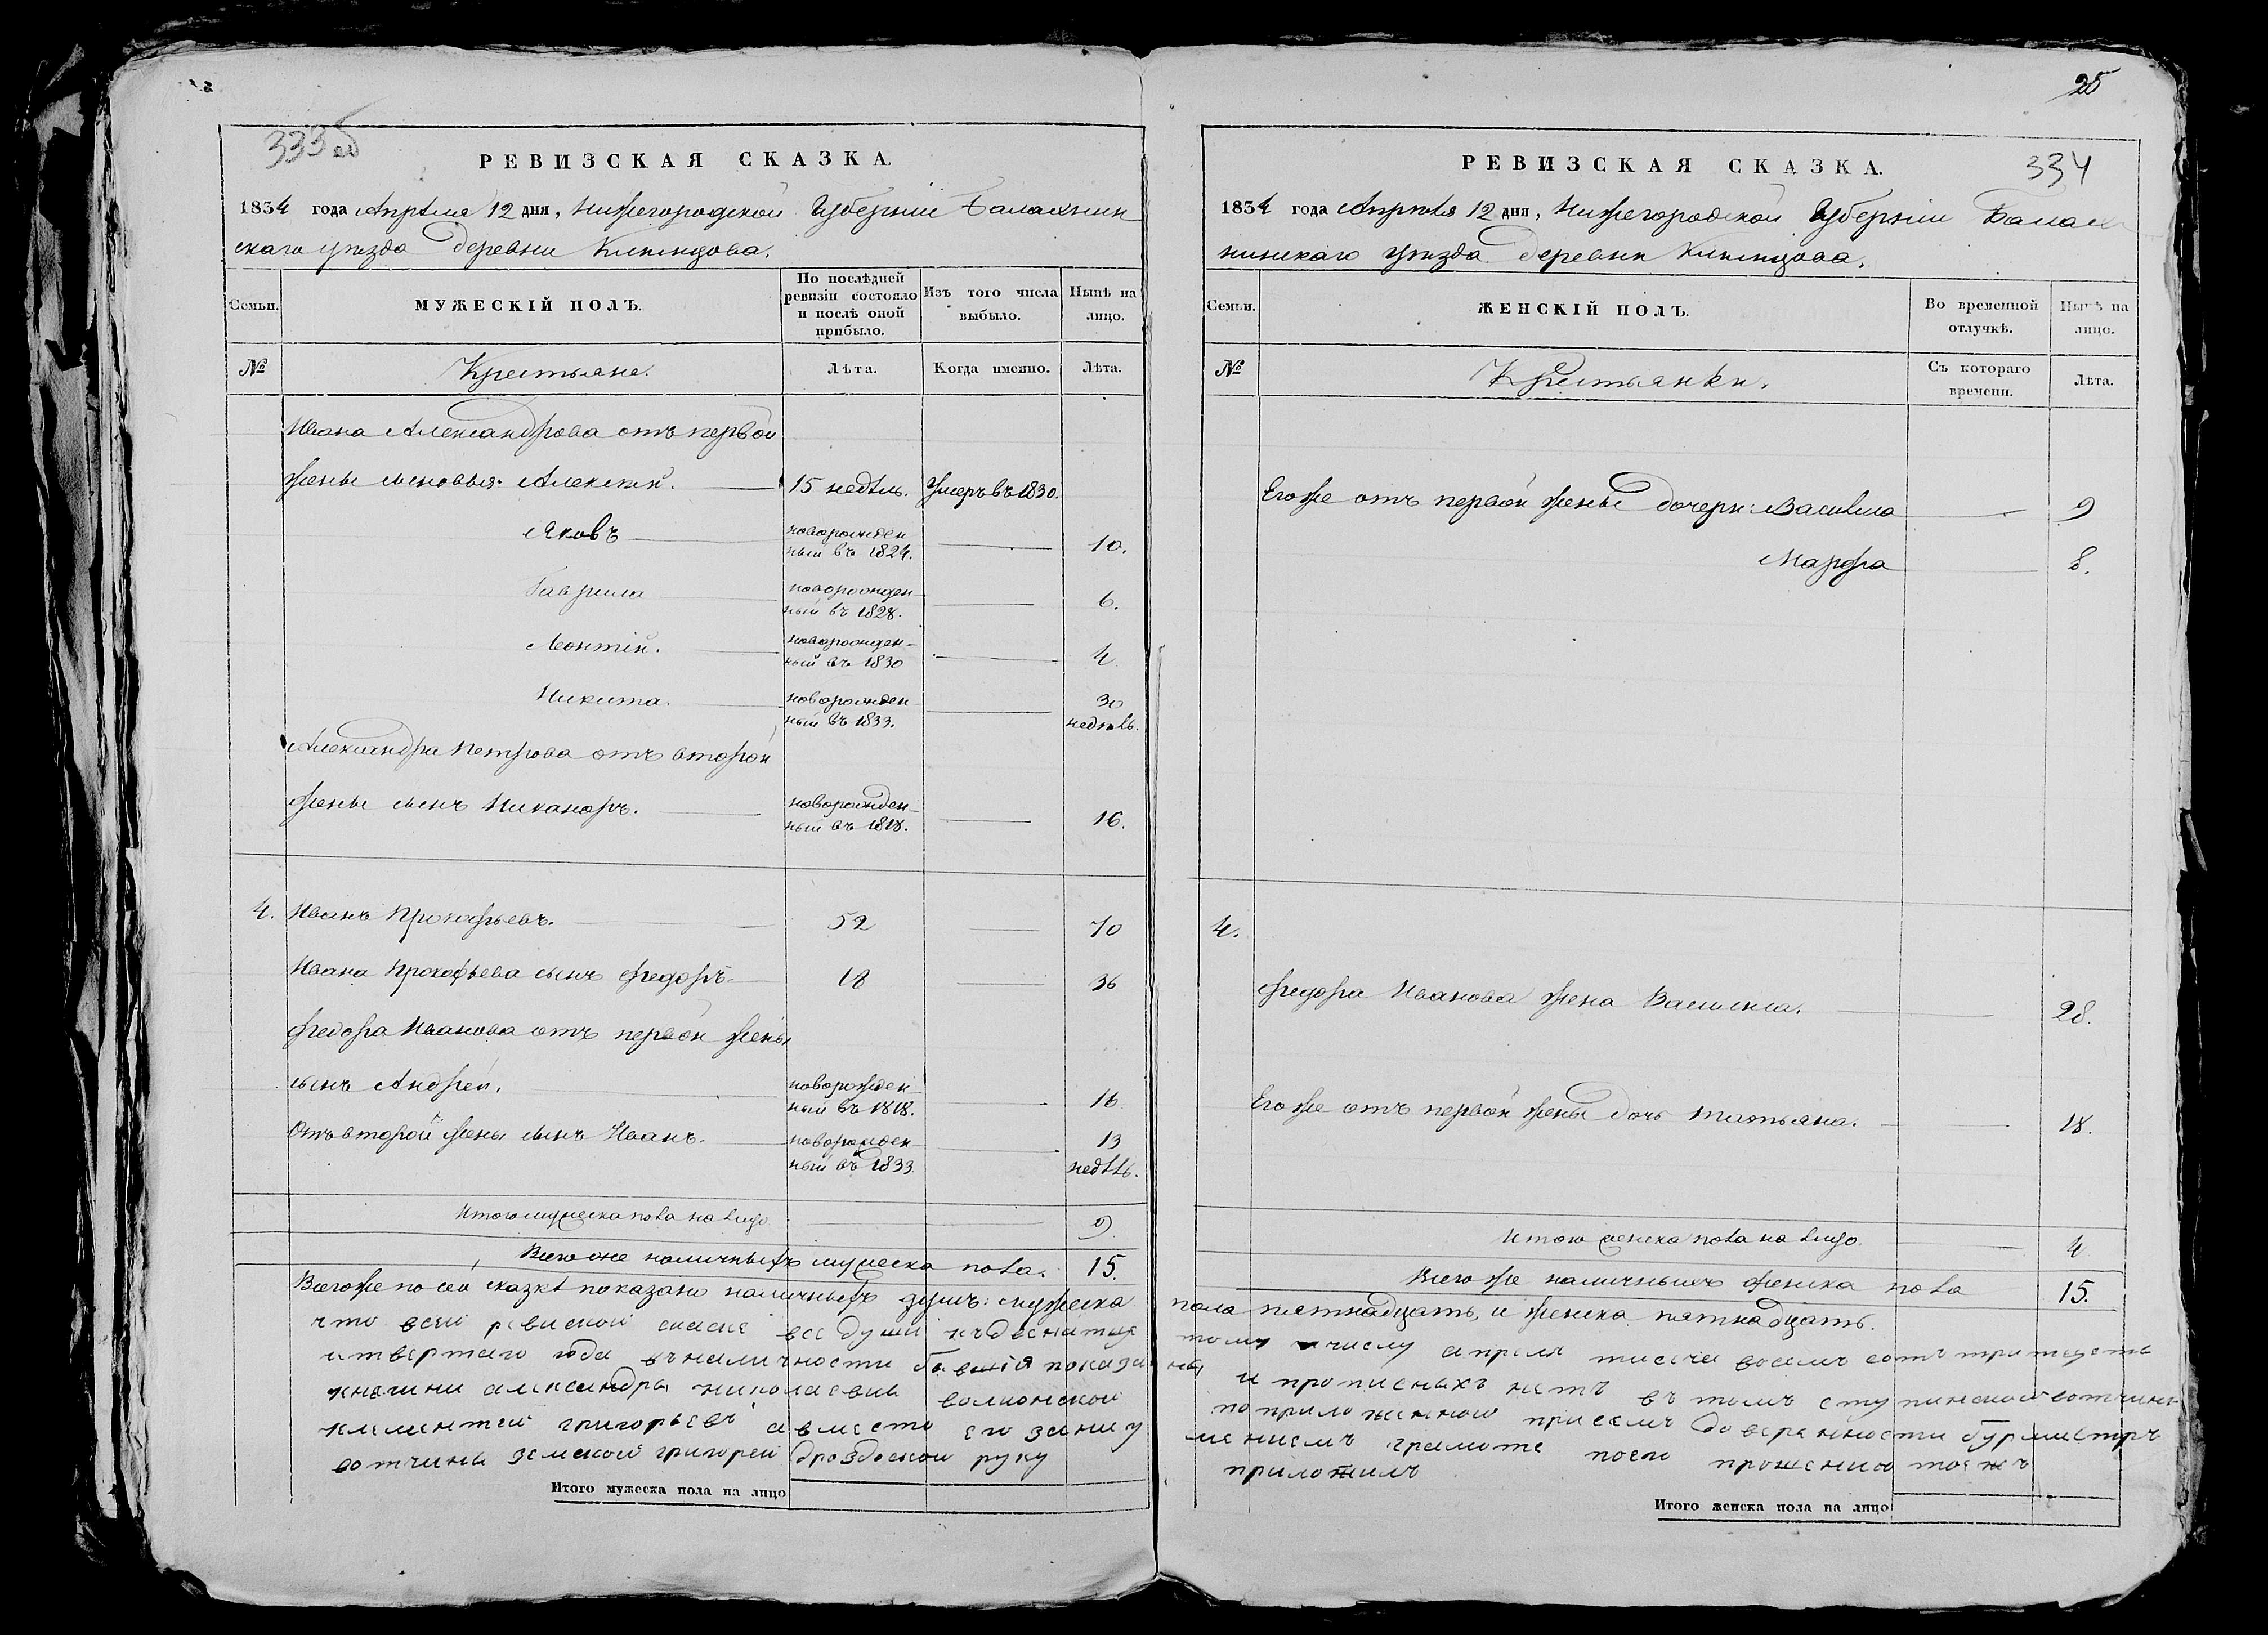 25
333 об
РЕВИЗСКАЯ СКАЗКА.
1834 года Апреля 12 дня, Нижегородской Губернии Балахнин
скаго уезда деревни
Семьи. МУЖЕСКІЙ ПОЛЪ. По послѣдней ревизіи состояло и послѣ оной прибыло. Изъ того числа выбыло. Нынѣ на лицо.
№ Крестьяне. Лѣта. Когда именно. Лѣта.
Ивана Александрова отъ первой
жены сыновья: Алексѣй. 15 недѣль. Умеръ въ 1830.
Яковъ новорожден
ный въ 1824. 10.
Гаврила новорожден
ный въ 1828. 6.
Леонтій. новорожден-
ный въ 1830 4
Никита. новорожден
ный въ 1833. 30
недѣль.
Александра Петрова отъ второй
жены сынъ Никаноръ. новорожден-
ный въ 1818. 16.
4. Иванъ Прокофьевъ. 52 70
Ивана Прокофьева сынъ Федоръ 18 36
Федора Иванова отъ первой жены
сынъ Андрей. новорожден
ный въ 1818. 16
Отъ второй жены сынъ Иванъ. новорожден
ный въ 1833. 13
недѣль.
Итого мужеска пола на лицо 9.
Всего же наличныхъ мужеска пола. 15.
Всего же по сей сказкѣ показано наличныхъ душъ: мужеска
что всей ревиской скаске все души
итвертаго года вналичности бывшія показаны
княгини александры николаевны волконской
климентей григорьевъ авместо его
вотчины земской григорей руку
Итого мужеска пола на лицо
334
РЕВИЗСКАЯ СКАЗКА.
1834 года Апреля 12 дня, Нижегородской Губерніи Балах
нинскаго уезда деревни
Семьи. ЖЕНСКІЙ ПОЛЪ. Во временной отлучкѣ. Нынѣ на лицо.
№ Крестьянки. Съ котораго времени. Лѣта.
Его же отъ первой жены дочери: Василиса 9
Марфа 8.
4.
Федора Иванова жена Василиса. 28.
Его же отъ первой жены дочь Татьяна. 18.
Итого женска пола на лицо. 4
Всего же наличныхъ женска пола 15.
пола пятнадцать, и женска пятнадцать.
тому числу апреля тысеча восемъ сотъ тритцеть
и прописныхъ нетъ втомъ
поприложенной присемъ доверенности бурмистръ
грамоте поево прошению тоежъ
приложилъ
Итого женска пола на лицо